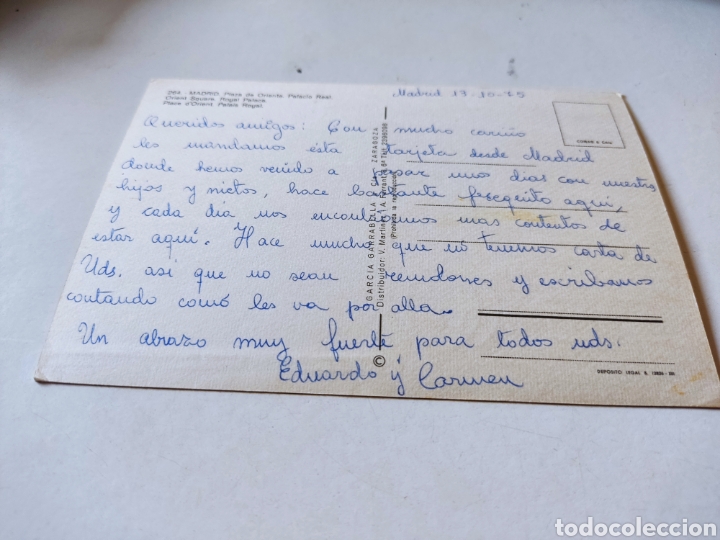 264 - MADRID. Plaza de Oriente. Palacio Real.
Orient Square. Royal Palace.
Place d'Orient. Palais Royal.
Madrid 13-10-75
Queridos amigos: Con mucho cariño
les mandamos ésta tarjeta desde Madrid
donde hemos venido a pasar unos dias con nuestros
hijos y nietos, hace bastante fresquito aquí,
y cada día nos encontramos mas contentos de
estar aquí. Hace mucho que no tenemos carta de
Uds. asi que no sean rencorosos y escribamos
contando como les va por alla.
Un abrazo muy fuerte para todos uds.
Eduardo y Carmen
© GARCIA GARRABELLA Y CIA. ZARAGOZA
Distribuidor: V. Martin
(Prohibida la reproducción)
DEPOSITO LEGAL
todocoleccion